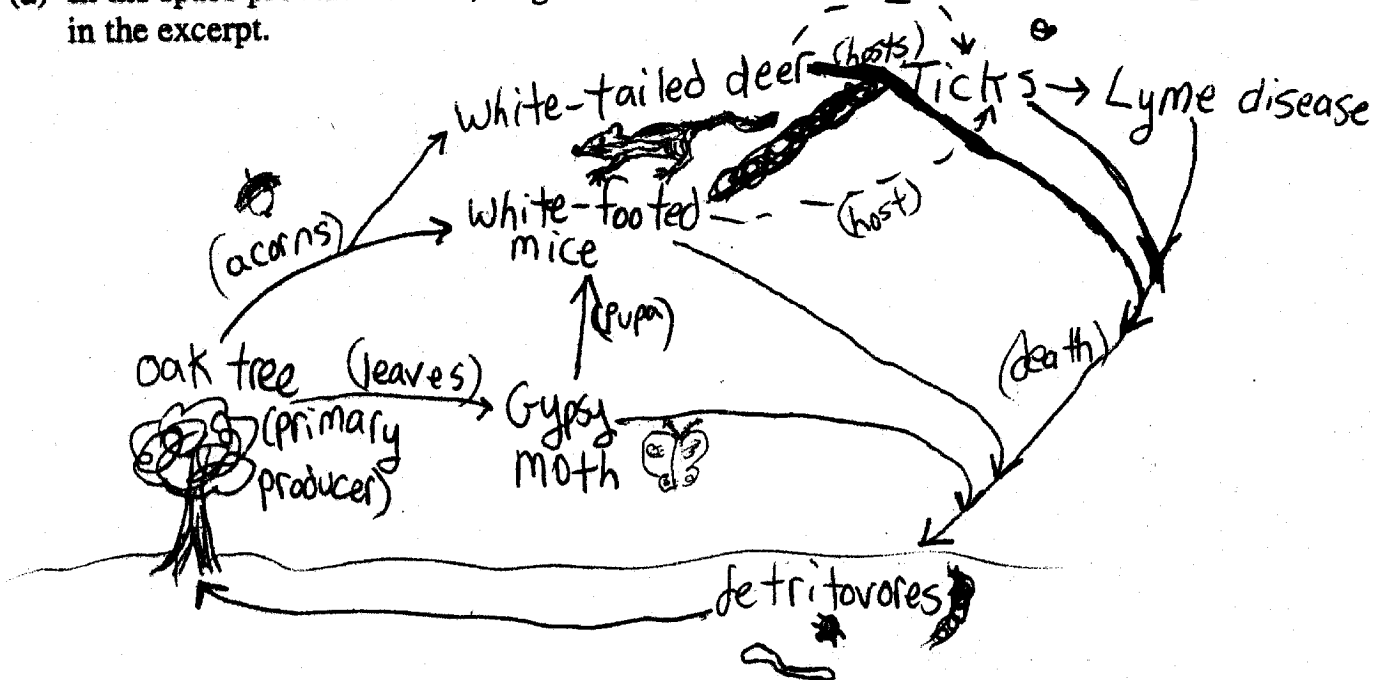 in the excerpt.
(hosts)
White-tailed deer
Ticks → Lyme disease
(acorns)
White-footed
mice
(host)
(pupa)
(death)
oak tree
(leaves)
Gypsy
moth
(primary
producer)
detritovores